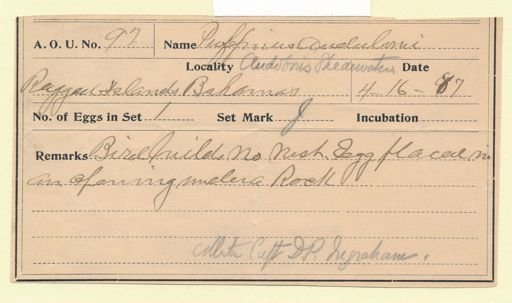 A. O. U. No. 92 Name Puffinus auduboni
Locality Audobons Shearwater Date
Ragged Islands Bahamas 4-16-87
No. of Eggs in Set 1 Set Mark Incubation
Remarks Bird builds no nest. Egg placed in
an opening under a Rock
D. P. Ingraham.